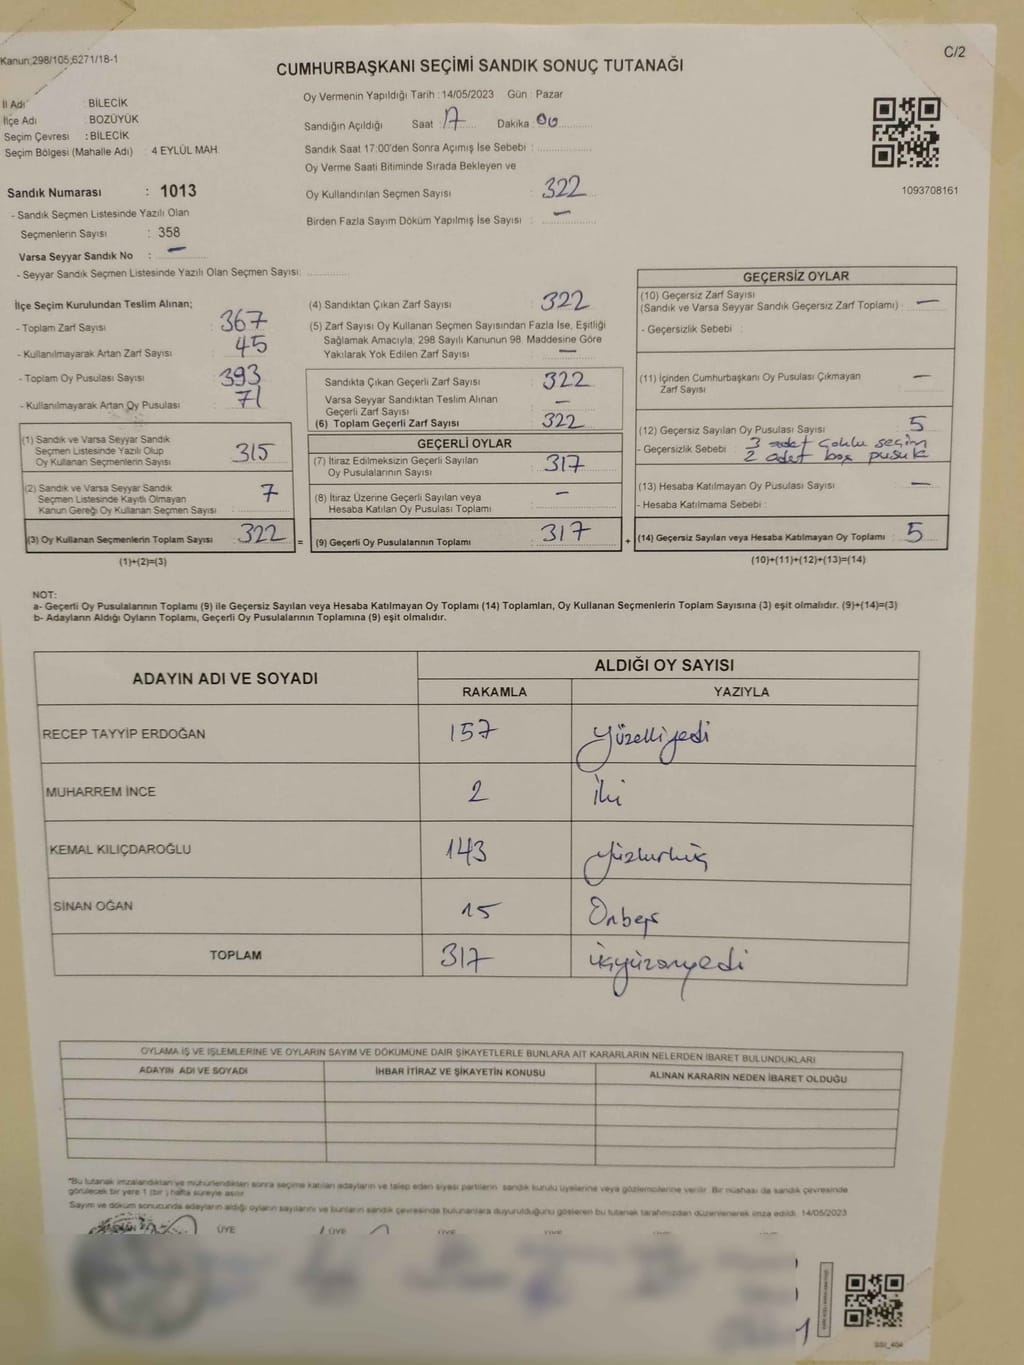 Kanun;298/105;6271/18-1
C/2
CUMHURBAŞKANI SEÇİMİ SANDIK SONUÇ TUTANAĞI
İl Adı : BİLECİK
İlçe Adı : BOZÜYÜK
Seçim Çevresi : BİLECİK
Seçim Bölgesi (Mahalle Adı) 4 EYLÜL MAH.
Sandık Numarası : 1013
- Sandık Seçmen Listesinde Yazılı Olan
Seçmenlerin Sayısı : 358
Varsa Seyyar Sandık No : –
- Seyyar Sandık Seçmen Listesinde Yazılı Olan Seçmen Sayısı:
Oy Vermenin Yapıldığı Tarih : 14/05/2023 Gün : Pazar
Sandığın Açıldığı Saat : 17 Dakika : 00
Sandık Saat 17:00'den Sonra Açımış İse Sebebi :
Oy Verme Saati Bitiminde Sırada Bekleyen ve
Oy Kullandırılan Seçmen Sayısı : 322
Birden Fazla Sayım Döküm Yapılmış İse Sayısı : –
1093708161
İlçe Seçim Kurulundan Teslim Alınan;
- Toplam Zarf Sayısı : 367
- Kullanılmayarak Artan Zarf Sayısı : 45
- Toplam Oy Pusulası Sayısı : 393
- Kullanılmayarak Artan Oy Pusulası : 71
(1) Sandık ve Varsa Seyyar Sandık
Seçmen Listesinde Yazılı Olup
Oy Kullanan Seçmenlerin Sayısı : 315
(2) Sandık ve Varsa Seyyar Sandık
Seçmen Listesinde Kayıtlı Olmayan
Kanun Gereği Oy Kullanan Seçmen Sayısı : 7
(3) Oy Kullanan Seçmenlerin Toplam Sayısı : 322
(1)+(2)=(3)
(4) Sandıktan Çıkan Zarf Sayısı : 322
(5) Zarf Sayısı Oy Kullanan Seçmen Sayısından Fazla İse, Eşitliği
Sağlamak Amacıyla; 298 Sayılı Kanunun 98. Maddesine Göre
Yakılarak Yok Edilen Zarf Sayısı : –
Sandıkta Çıkan Geçerli Zarf Sayısı : 322
Varsa Seyyar Sandıktan Teslim Alınan
Geçerli Zarf Sayısı : –
(6) Toplam Geçerli Zarf Sayısı : 322
GEÇERLİ OYLAR
(7) İtiraz Edilmeksizin Geçerli Sayılan
Oy Pusulalarının Sayısı : 317
(8) İtiraz Üzerine Geçerli Sayılan veya
Hesaba Katılan Oy Pusulası Toplamı : –
= (9) Geçerli Oy Pusulalarının Toplamı : 317
GEÇERSİZ OYLAR
(10) Geçersiz Zarf Sayısı
(Sandık ve Varsa Seyyar Sandık Geçersiz Zarf Toplamı) : –
- Geçersizlik Sebebi :
(11) İçinden Cumhurbaşkanı Oy Pusulası Çıkmayan
Zarf Sayısı : –
(12) Geçersiz Sayılan Oy Pusulası Sayısı : 5
- Geçersizlik Sebebi : 3 adet çoklu seçim
2 adet boş pusula
(13) Hesaba Katılmayan Oy Pusulası Sayısı : –
- Hesaba Katılmama Sebebi :
+ (14) Geçersiz Sayılan veya Hesaba Katılmayan Oy Toplamı : 5
(10)+(11)+(12)+(13)=(14)
NOT:
a- Geçerli Oy Pusulalarının Toplamı (9) ile Geçersiz Sayılan veya Hesaba Katılmayan Oy Toplamı (14) Toplamları, Oy Kullanan Seçmenlerin Toplam Sayısına (3) eşit olmalıdır. (9)+(14)=(3)
b- Adayların Aldığı Oyların Toplamı, Geçerli Oy Pusulalarının Toplamına (9) eşit olmalıdır.
ADAYIN ADI VE SOYADI ALDIĞI OY SAYISI
RAKAMLA YAZIYLA
RECEP TAYYİP ERDOĞAN 157 Yüzelliyedi
MUHARREM İNCE 2 İki
KEMAL KILIÇDAROĞLU 143 yüzkırküç
SİNAN OĞAN 15 Onbeş
TOPLAM 317 üçyüzonyedi
OYLAMA İŞ VE İŞLEMLERİNE VE OYLARIN SAYIM VE DÖKÜMÜNE DAİR ŞİKAYETLERLE BUNLARA AİT KARARLARIN NELERDEN İBARET BULUNDUKLARI
ADAYIN ADI VE SOYADI İHBAR İTİRAZ VE ŞİKAYETİN KONUSU ALINAN KARARIN NEDEN İBARET OLDUĞU
*Bu tutanak imzalandıktan ve mühürlendikten sonra seçime katılan adayların ve talep eden siyasi partilerin sandık kurulu üyelerine veya gözlemcilerine verilir. Bir nüshası da sandık çevresinde
görülecek bir yere 1 (bir ) hafta süreyle asılır.
Sayım ve döküm sonucunda adayların aldığı oyların sayılarını ve bunların sandık çevresinde bulunanlara duyurulduğunu gösteren bu tutanak tarafımızdan düzenlenerek imza edildi. 14/05/2023
ÜYE ÜYE ÜYE ÜYE ÜYE